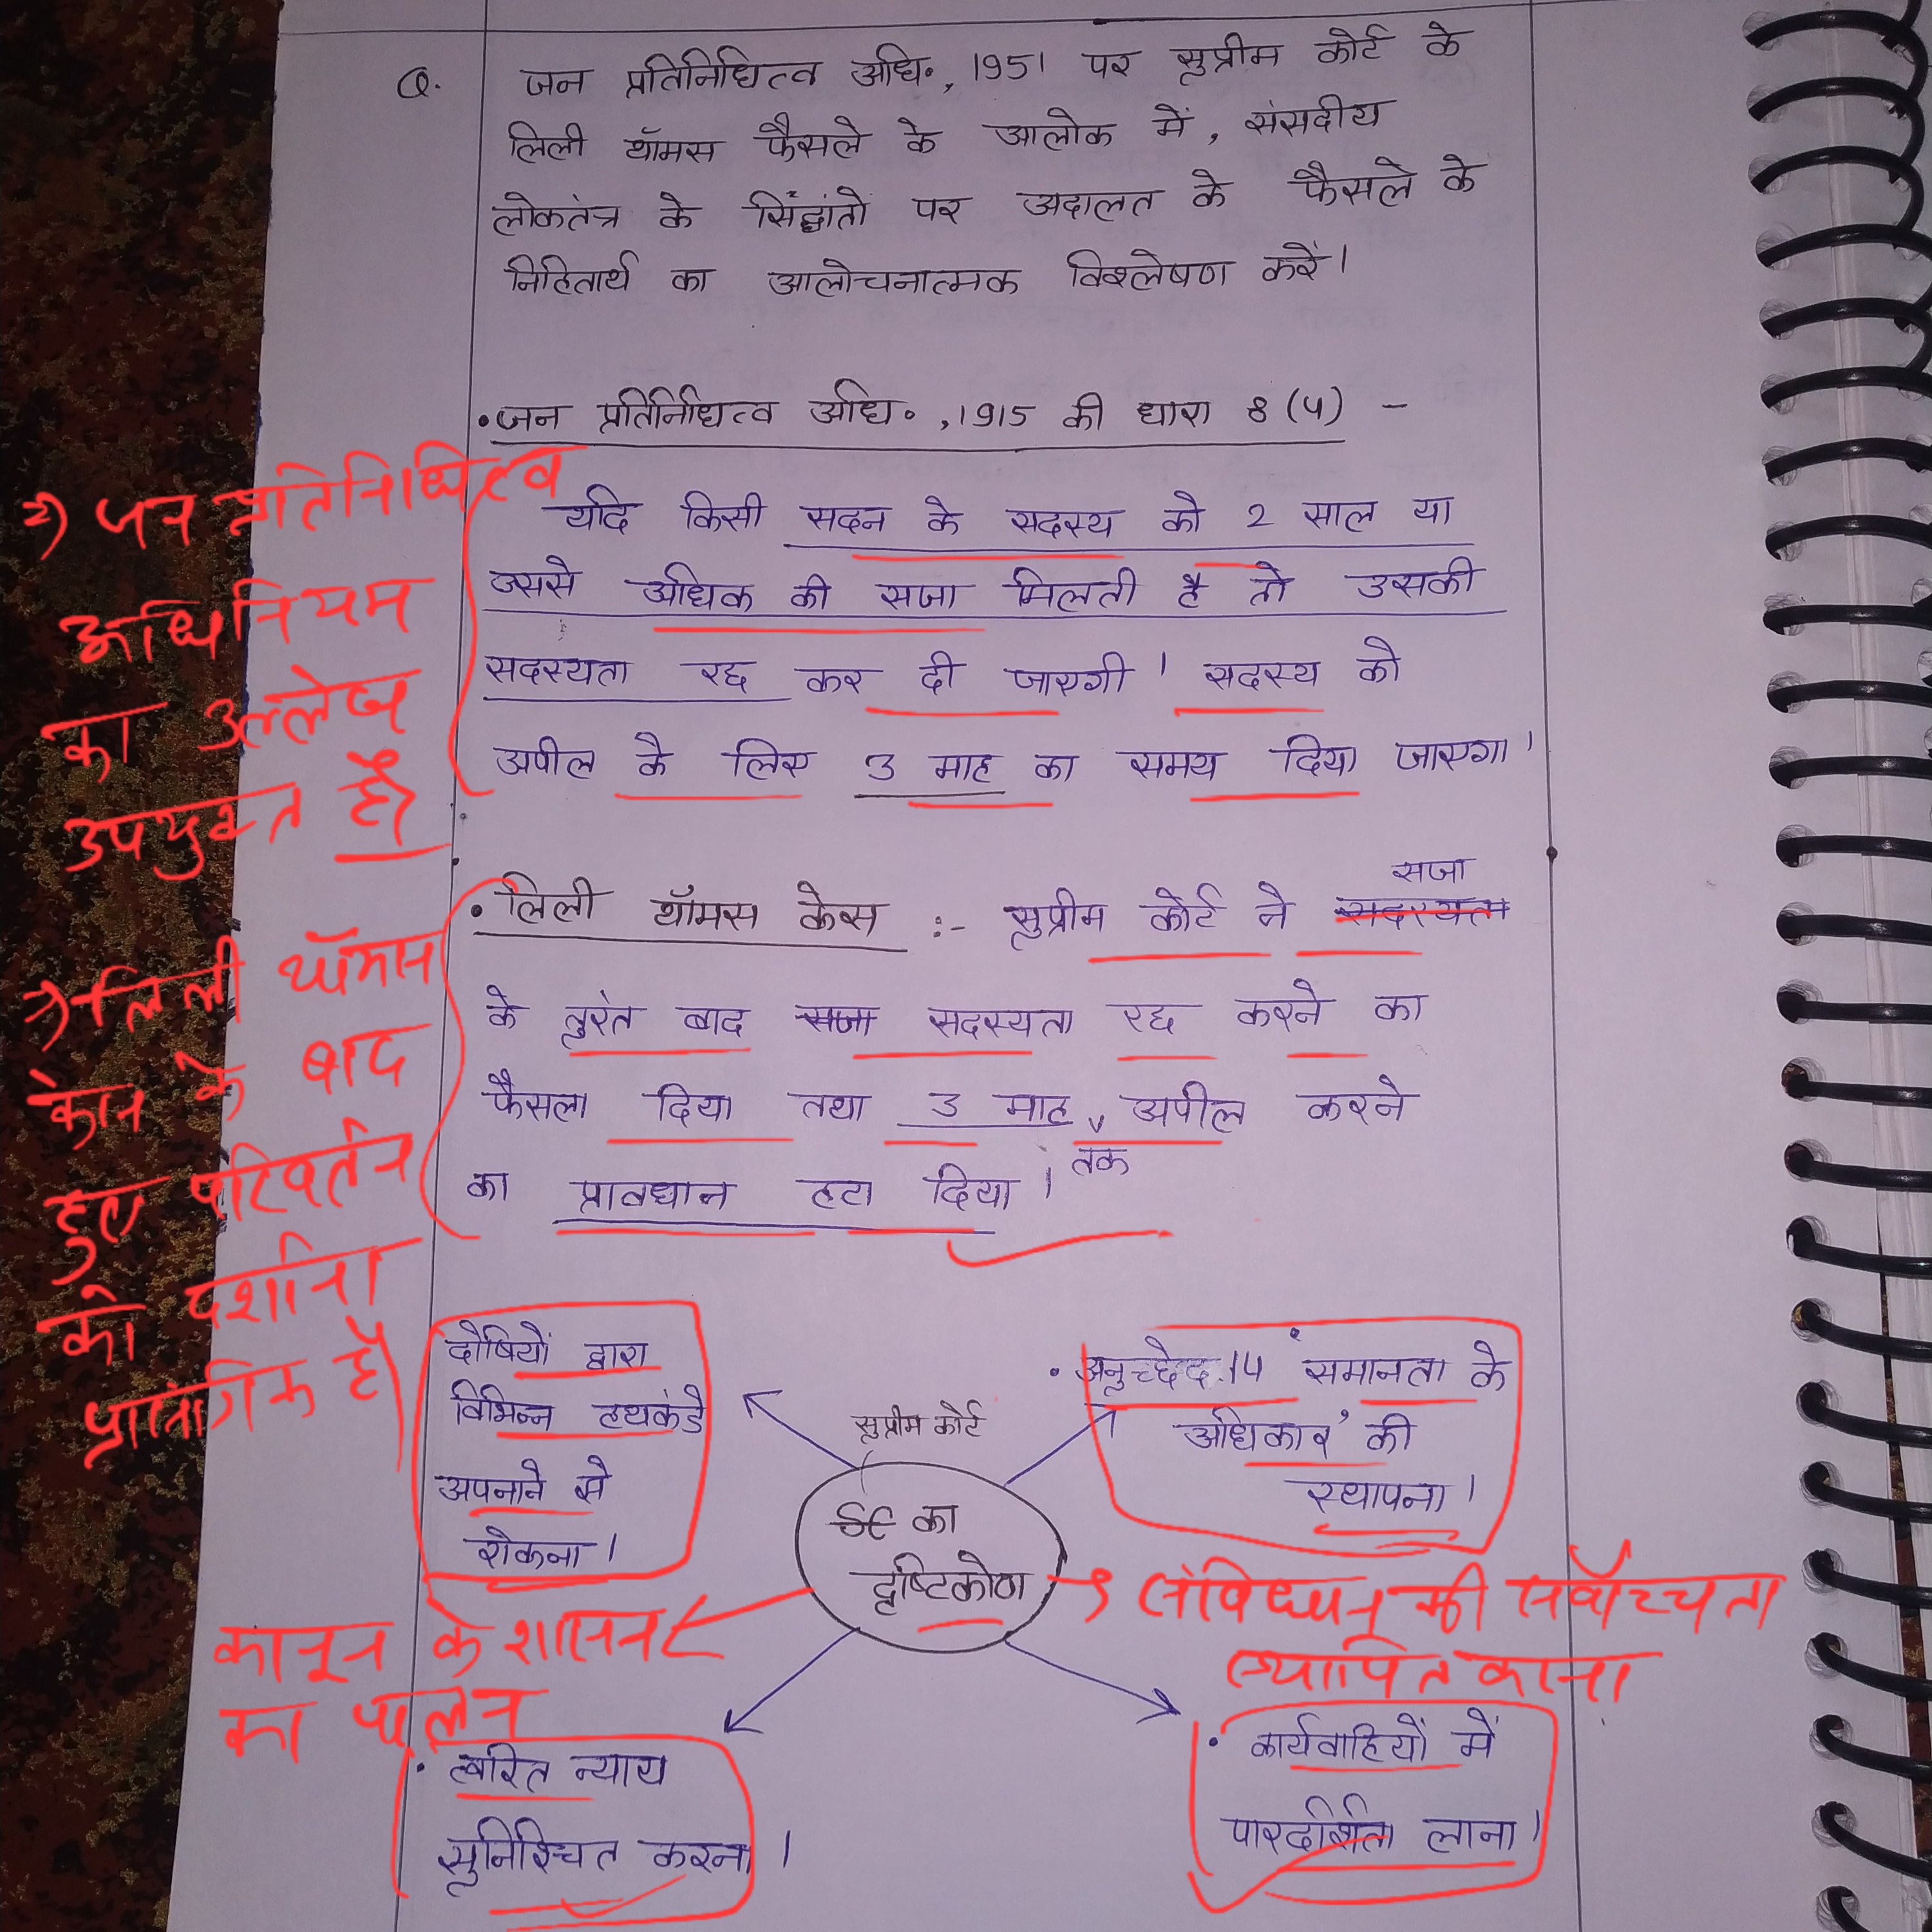 Q. जन प्रतिनिधित्व अधि॰, 1951 पर सुप्रीम कोर्ट के
लिली थॉमस फैसले के आलोक में, संसदीय
लोकतंत्र के सिंद्धांतो पर अदालत के फैसले के
निहितार्थ का आलोचनात्मक विश्लेषण करें।
• जन प्रतिनिधित्व अधि॰, 1915 की धारा 8 (4) -
यदि किसी सदन के सदस्य को 2 साल या
उससे अधिक की सजा मिलती है तो उसकी
सदस्यता रद्द कर दी जाएगी। सदस्य को
अपील के लिए 3 माह का समय दिया जाएगा।
→) जन प्रतिनिधित्व
अधिनियम
का उल्लेख
उपयुक्त है
• लिली थॉमस केस :- सुप्रीम कोर्ट ने सदस्यता सजा
के तुरंत बाद सजा सदस्यता रद्द करने का
फैसला दिया तथा 3 माह तक अपील करने
का प्रावधान हटा दिया।
→) लिली थॉमस
केस के बाद
हुए परिवर्तन
को दर्शाना
प्रासंगिक है
दोषियों द्वारा
विभिन्न हथकंडे
अपनाने से
रोकना।
• अनुच्छेद.14 समानता के
अधिकार' की
स्थापना।
सुप्रीम कोर्ट
SC का
दृष्टिकोण
→ संविधान की सर्वोच्चता
स्थापित करना
कानून के शासन
का चलन
• त्वरित न्याय
सुनिश्चित करना।
• कार्यवाहियों में
पारदर्शिता लाना।